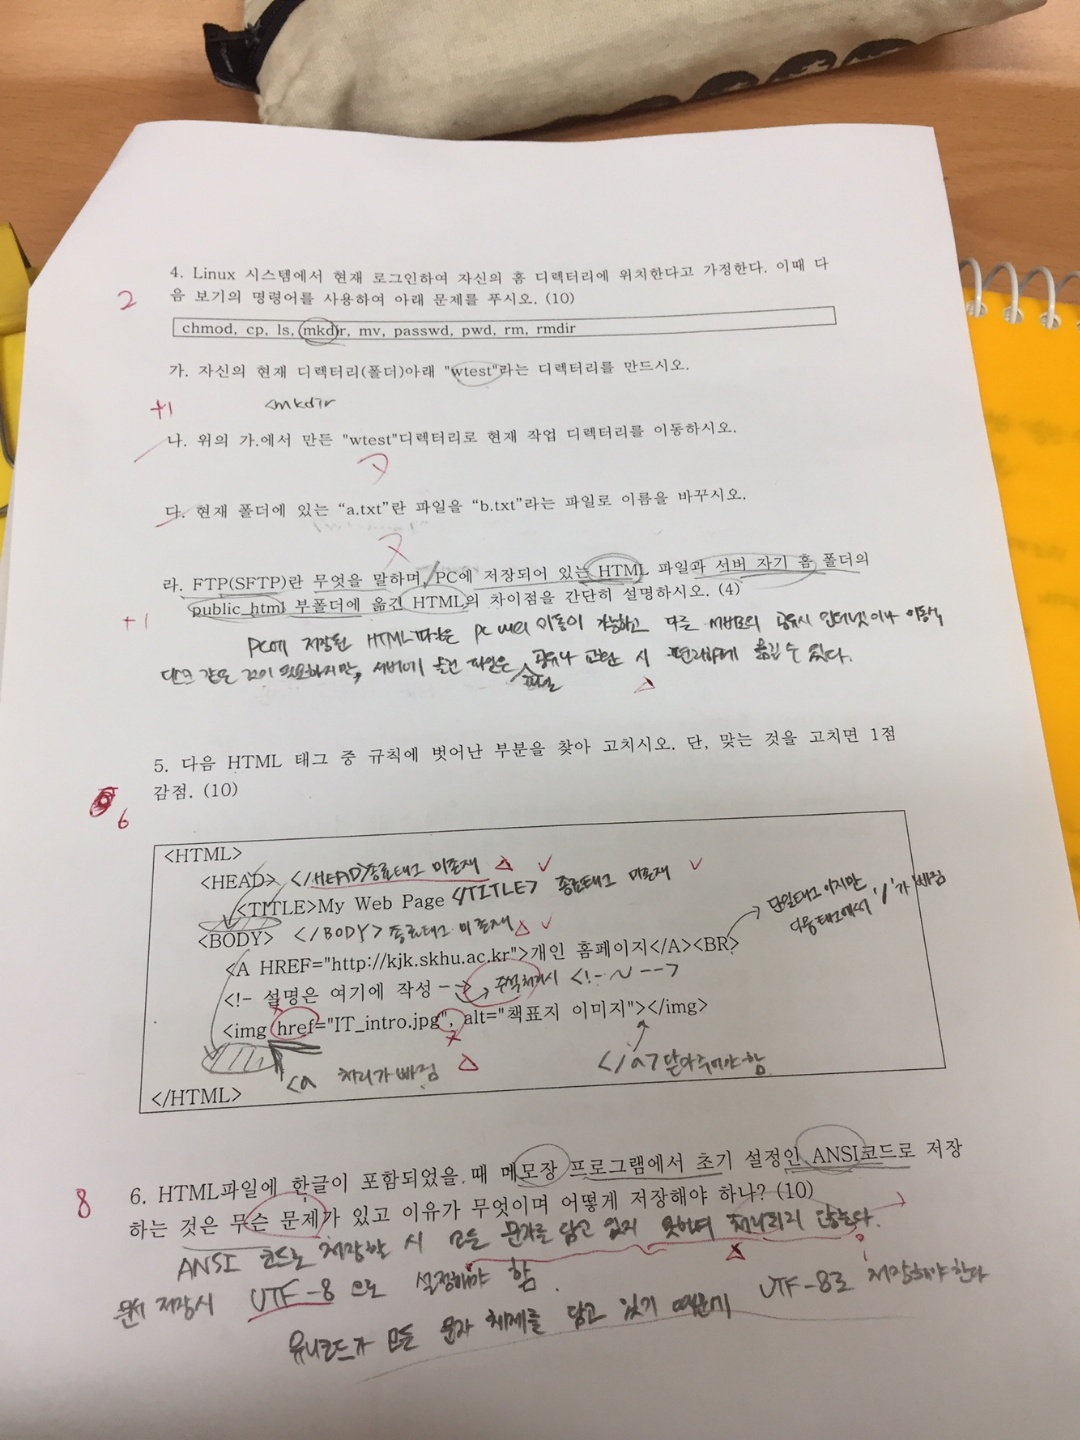 4. Linux 시스템에서 현재 로그인하여 자신의 홈 디렉터리에 위치한다고 가정한다. 이때 다
음 보기의 명령어를 사용하여 아래 문제를 푸시오. (10)
2
chmod, cp, ls, mkdir, mv, passwd, pwd, rm, rmdir
가. 자신의 현재 디렉터리(폴더)아래 "wtest"라는 디렉터리를 만드시오.
+1
<mkdir
나. 위의 가.에서 만든 "wtest"디렉터리로 현재 작업 디렉터리를 이동하시오.
다. 현재 폴더에 있는 “a.txt”란 파일을 “b.txt”라는 파일로 이름을 바꾸시오.
라. FTP(SFTP)란 무엇을 말하며, PC에 저장되어 있는 HTML 파일과 서버 자기 홈 폴더의
public_html 부폴더에 옮긴 HTML의 차이점을 간단히 설명하시오. (4)
+1
PC에 저장된 HTML파일은 PC 이동이 가능하고 다른 공유시 인터넷이나 이동식
디스크 같은 것이 필요하지만, 서버에 옮긴 파일은 공유나 시 편리하게 옮길 수 있다.
파일
5. 다음 HTML 태그 중 규칙에 벗어난 부분을 찾아 고치시오. 단, 맞는 것을 고치면 1점
감점. (10)
6
<HTML>
<HEAD> </HEAD>종료태그 미존재
<TITLE>My Web Page </TITLE> 종료태그 미존재
<BODY> </BODY> 종료태그 미존재
단일태그이지만
다음태그에서 '/'가 빠짐
<A HREF="http://kjk.skhu.ac.kr">개인 홈페이지</A><BR>
<!- 설명은 여기에 작성 --> 주석처리시 <!- ~ -->
<img href="IT_intro.jpg", alt="책표지 이미지"></img>
<a 처리가 빠짐
</a> 닫아주어야 함
</HTML>
8
6. HTML파일에 한글이 포함되었을 때 메모장 프로그램에서 초기 설정인 ANSI코드로 저장
하는 것은 무슨 문제가 있고 이유가 무엇이며 어떻게 저장해야 하나? (10)
ANSI 코드로 저장할 시 모든 문자를 담고 있지 못하며 처리되지 않는다.
문서 저장시 UTF-8 으로 설정해야 함.
유니코드가 모든 문자 체제를 담고 있기 때문에 UTF-8로 저장해야한다